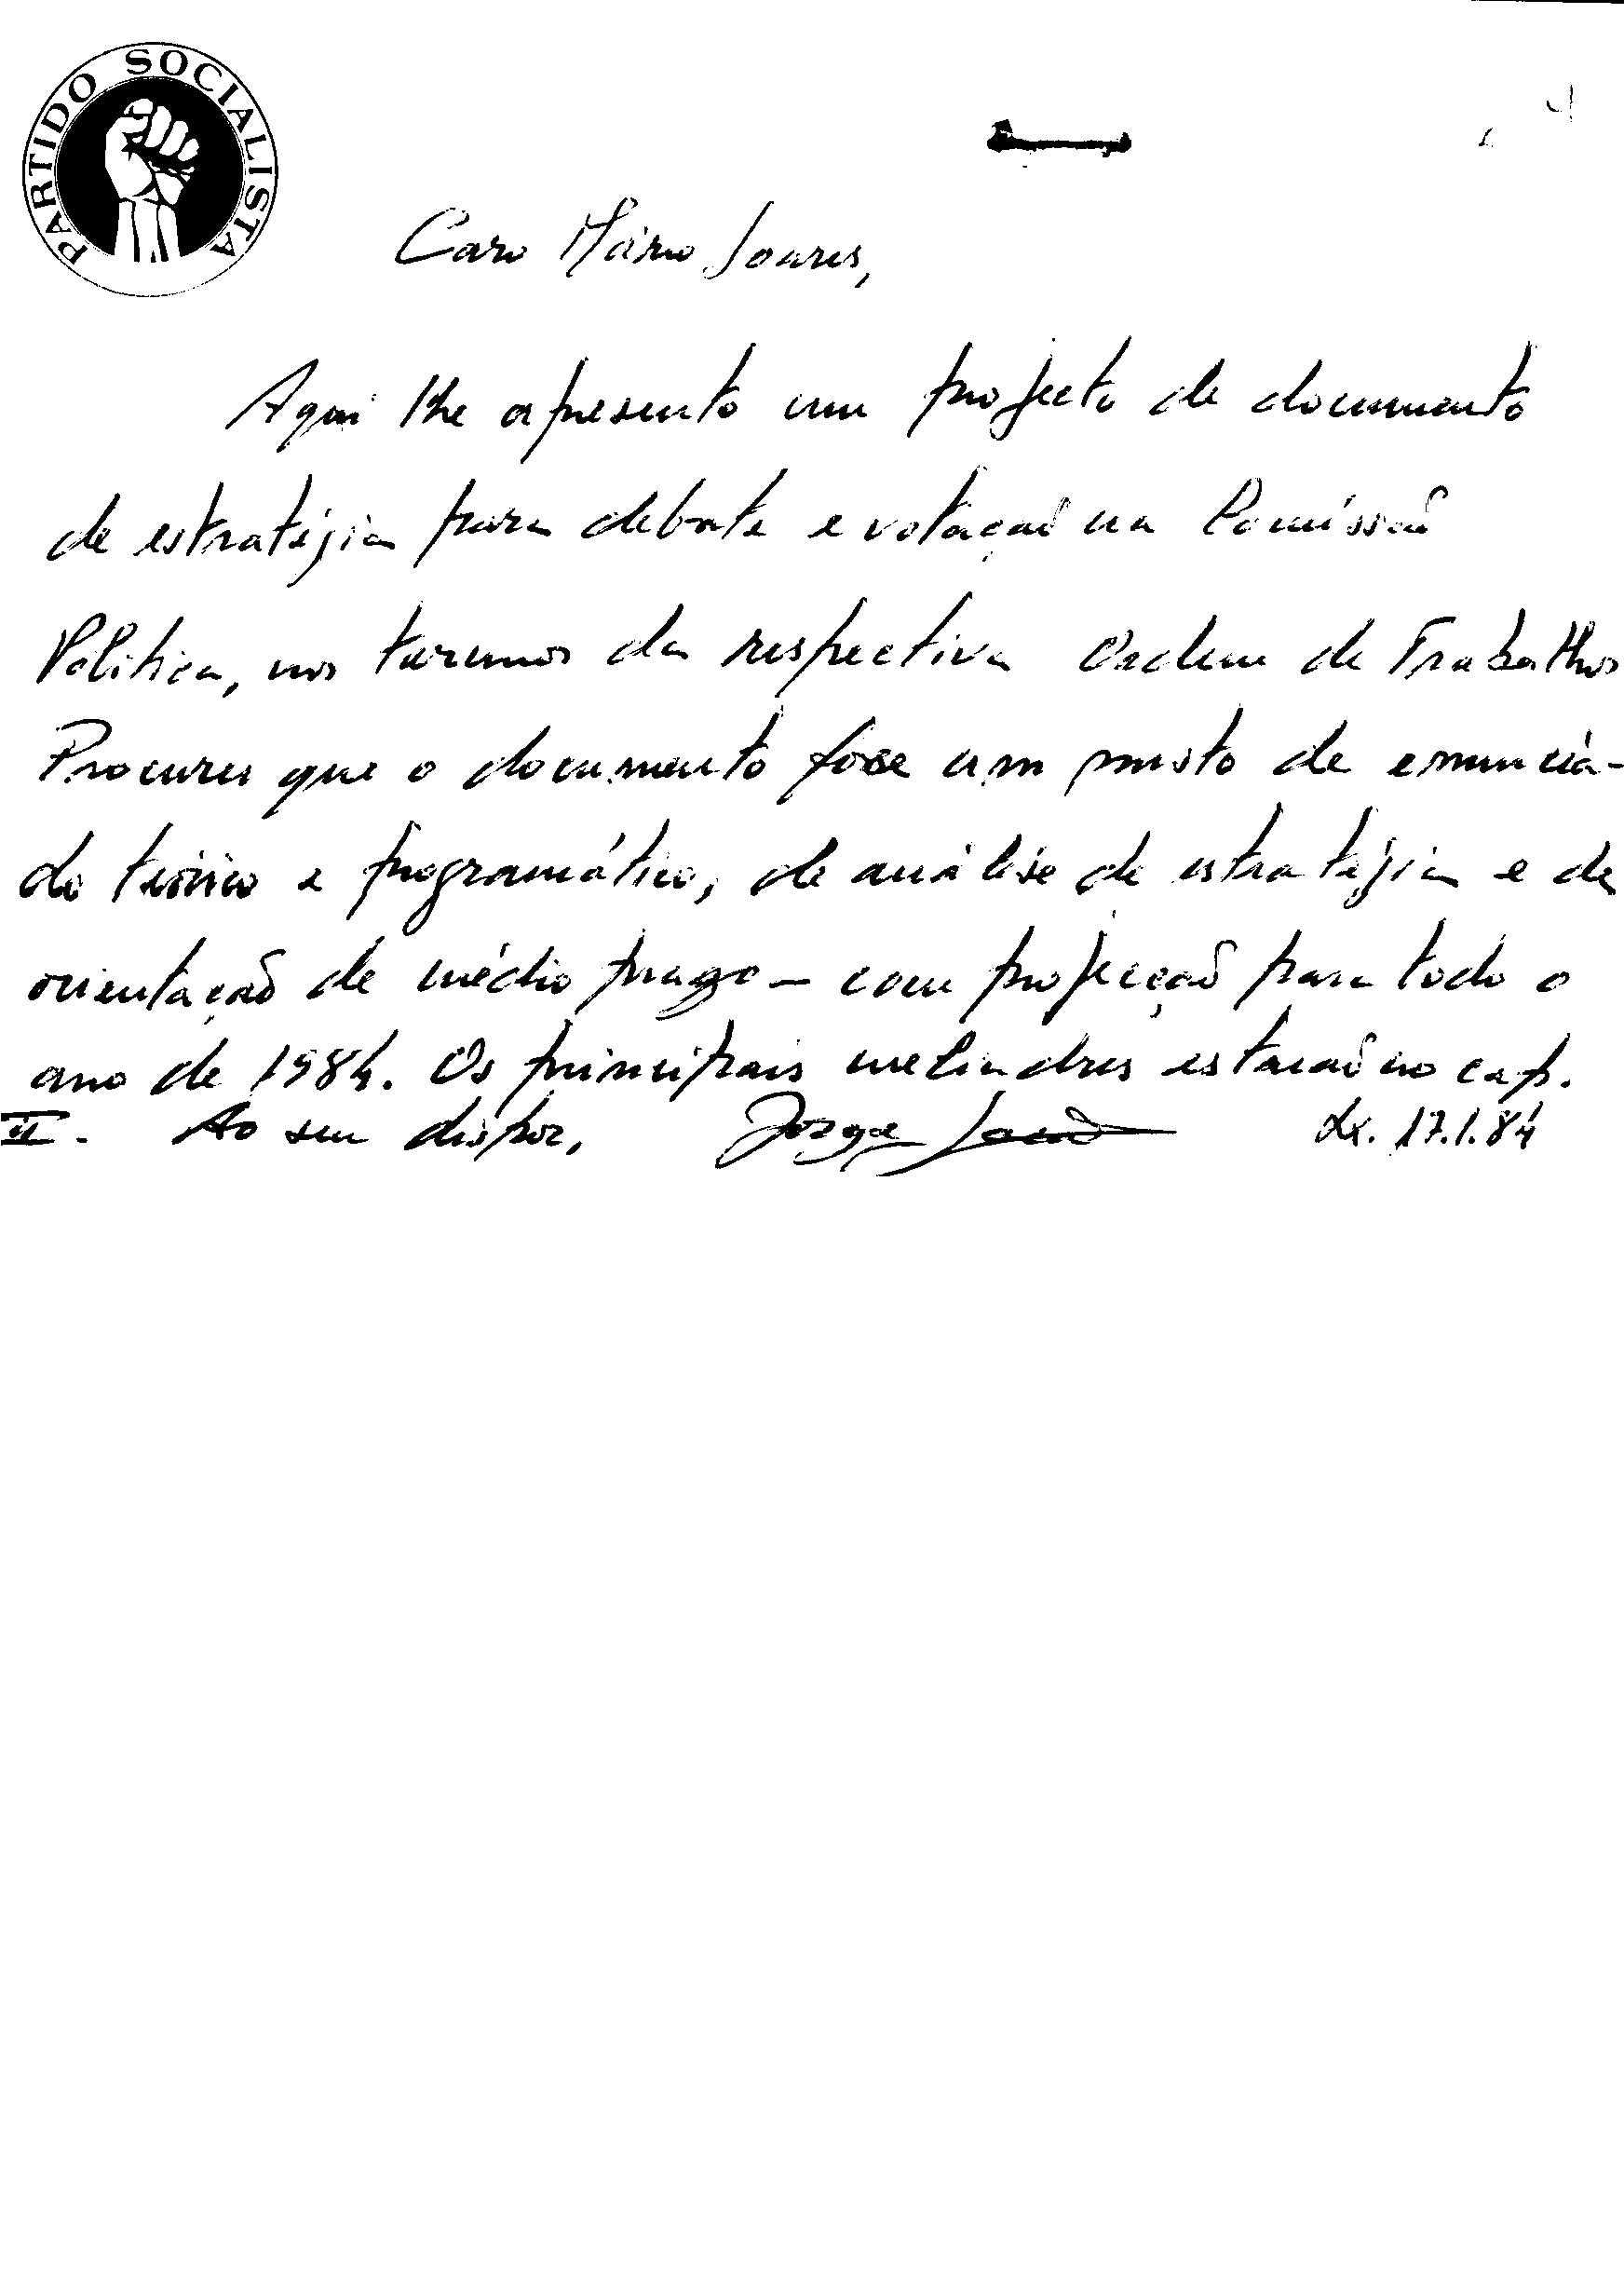 PARTIDO SOCIALISTA
Caro Mário Soares,
Aqui lhe apresento um projecto de documento
de estratégia para debate e votação na Comissão
Política, nos termos da respectiva Ordem de Trabalhos
Procurei que o documento fosse um misto de enuncia-
do teórico e programático, de análise de estratégia e de
orientação de médio prazo - com projecção para todo o
ano de 1984. Os principais melindres estarão no cap.
II. Ao seu dispor, Jorge Lacão Lx. 17.1.84